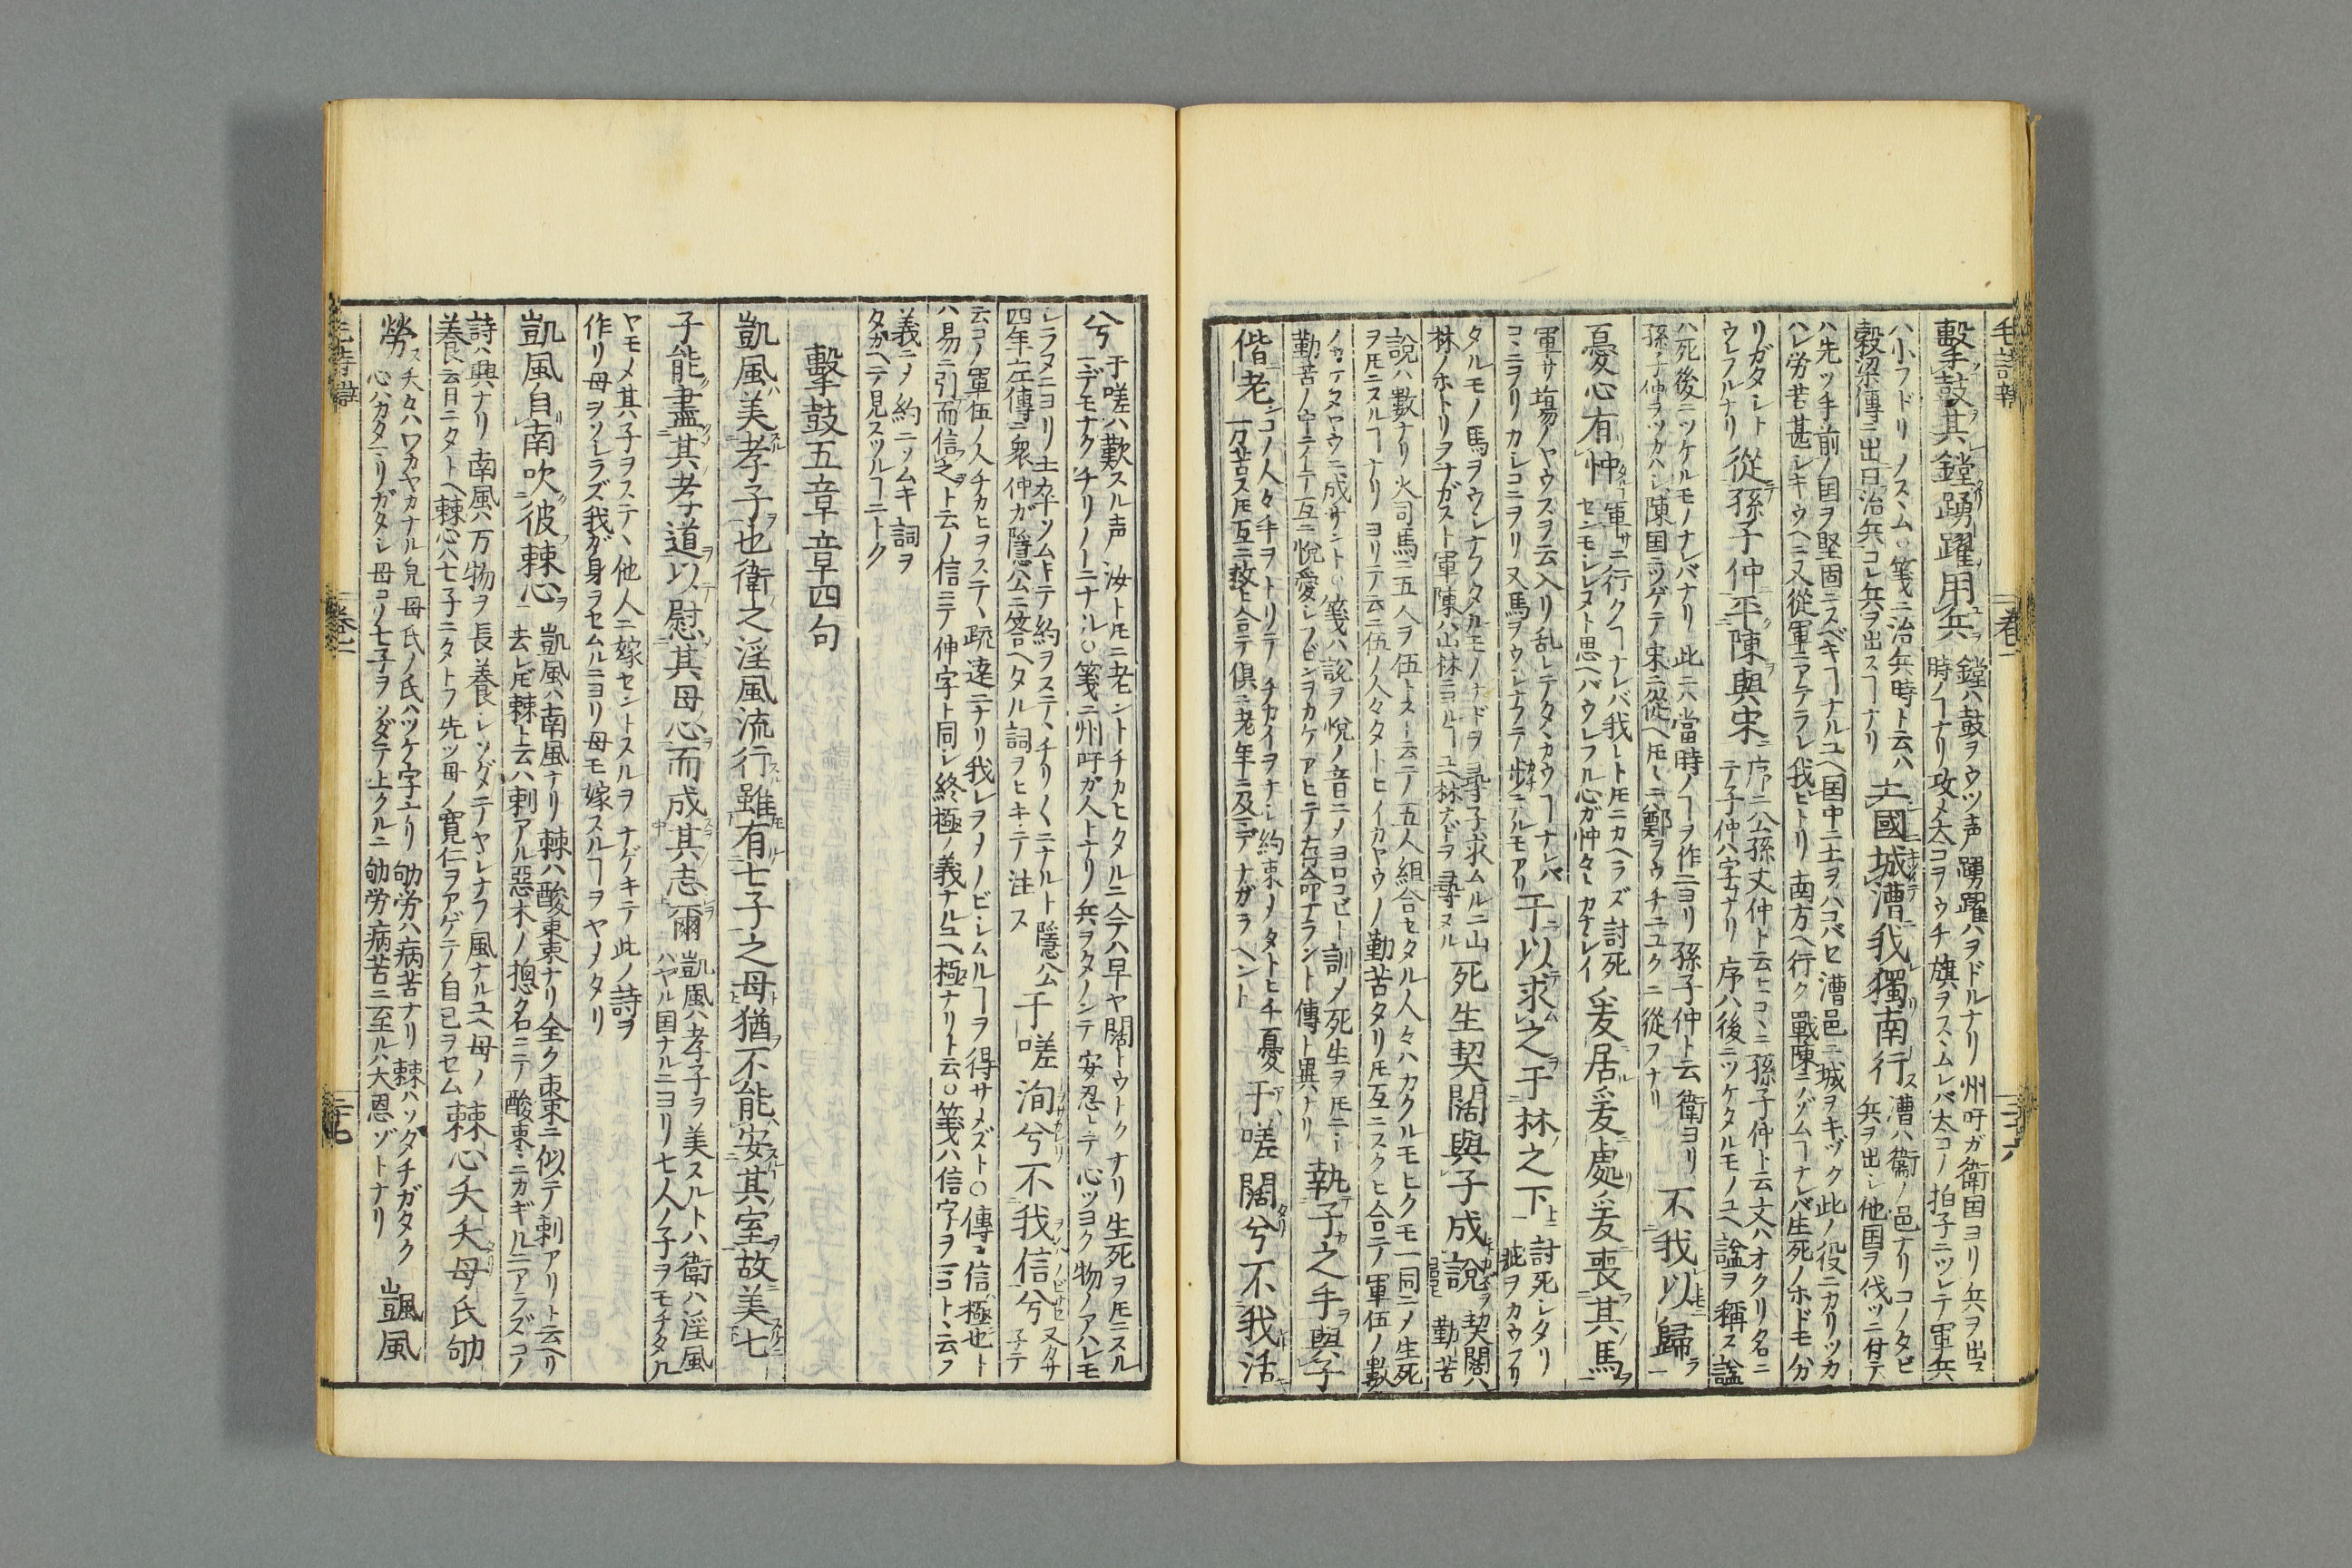 擊鼓其鏜踴躍用兵 鏜ハ鼓ヲウツ声踴躍ハヲドルナリ州吁ガ衛国ヨリ兵ヲ出ス
時ノヿナリ攻メ太コヲウチ旗ヲスヽムレバ太コノ拍子ニツレテ軍兵
ハ小ヲドリノスヽム○箋ニ治兵時ト云ハ
穀梁傳ニ出曰治兵コレ兵ヲ出スヿナリ
土國城漕我獨南行 漕ハ衛ノ邑ナリコノタビ
兵ヲ出シ他国ヲ伐ツニ付テ
ハ先ツ手前ノ国ヲ堅固ニスベキヿナルユヘ国中ニ土ヲハコバセ漕邑ニ城ヲキヅク此ノ役ニカリツカ
ハレ労苦甚レキウヘニ又從軍ニアテラレ我ヒトリ南方ヘ行ク戰陳ニノゾムヿナレバ生死ノホドモ分
リガタシト
ウレフルナリ
從孫子仲平陳與宋 序ニ公孫丈仲ト云ヒコヽニ孫子仲ト云文ハオクリ名ニ
テ子仲ハ字ナリ序ハ後ニツケタルモノユヘ謚ヲ稱ス謚
ハ死後ニツケルモノナレバナリ此ニハ當時ノヿヲ作ニヨリ孫子仲ト云衛ヨリ
孫子仲ヲツカハシ陳国ニツゲテ宋ニ從ヘ𪜈ニ鄭ヲウチニユクニ從フナリ
不我以歸
憂心有忡 軍サニ行クヿナレバ我レト𪜈ニカヘラズ討死
センモシレヌト思ヘバウレフル心ガ忡々シカナシイ
爰居爰處爰喪其馬
軍サ場ノヤウスヲ云入リ乱レテタヽカウヿナレバ
コヽニヲリカシコニヲリ又馬ヲウシナフテ歩ニテルモアリ
于以求之于林之下 討死シタリ
疵ヲカウフリ
タルモノ馬ヲウシナフタルモノナドヲ尋子求ムルニ山
林ノホトリヲナガスト軍陳ハ山林ニヨルヿユヘ林ナドヲ尋ヌル
死生契闊與子成說 契闊ハ
勤苦
說ハ數ナリ火司馬ニ五人ヲ伍トスト云テ五人組合セタル人々ハカクルモヒクモ一同ニノ生死
ヲ𪜈ニスルヿナリヨリテ云ニ伍ノ人々タトヒイカヤウノ勤苦タリ𪜈互ニスクヒ合テ軍伍ノ數
ノカケタヤウニ成サント○箋ハ說ヲ悅ノ音ニノヨロコビト訓ノ死生ヲ𪜈ニシ
勤苦ノ中ニイテ互ニ悅愛シフビンヲカケアヒテ存命ナラント傳ト異ナリ
執子之手與子
偕老 コノ人々手ヲトリテチカイヲナシ約束ノタトヒ千憂
万苦ス𪜈互ニ救ヒ合テ倶ニ老年ニ及ニデナガラヘント
于嗟闊兮不我活
兮 于嗟ハ歎スル声汝ト𪜈ニ老ント チカヒタルニ今ハ早ヤ闊トウトクナリ生死ヲ𪜈ニスル
ヿデモナクチリ〳〵ニナル○箋ニ州吁ガ人トナリ兵ヲタノンテ安忍シテ心ツヨク物ノアハレモ
シラヌニヨリ士卒ソムキテ約ヲステヽチリ〳〵ニナルト隱公
四年左傳ニ衆仲ガ隱公ニ答ヘタル詞ヲヒキテ注ス
于嗟洵兮不我信兮 又カサ
子テ
云コノ軍伍ノ人チカヒヲステヽ疏遠ニナリ我レヲノビシムルヿヲ得サメズト○傳ニ信極也ト
ハ易ニ引而信之ト云ノ信ニテ伸字ト同シ終極ノ義ナルユヘ極ナリト云○箋ハ信字ヲマコトヽ云フ
義ニノ約ニソムキ詞ヲ
タガヘテ見スツルヿニトク
擊鼓五章章四句
凱風美孝子也衛之淫風流行雖有七子之母猶不能安其室故美七
子能盡其孝道以慰其母心而成其志爾 凱風ハ孝子ヲ美スルトハ衛ハ淫風
ハヤル国ナルニヨリ七人ノ子ヲモチタル
ヤモメ其子ヲステヽ他人ニ嫁セントスルヲナゲキテ此ノ詩ヲ
作リ母ヲソシラズ我ガ身ヲセムルニヨリ母モ嫁スルヿヲヤメタリ
凱風自南吹彼棘心 凱風ハ南風ナリ棘ハ酸棗ナリ全ク棗ニ似テ刺アリト云ヘリ
去レ𪜈棘ト云ハ刺アル惡木ノ摠名ニテ酸棗ニカギルニアラズコノ
詩ハ興ナリ南風ハ万物ヲ長養シソダテヤシナフ風ナルユヘ母ノ
養育ニタトヘ棘心ハ七子ニタトフ先ツ母ノ寛仁ヲアゲテ自己ヲセム
棘心夭夭母氏劬
勞 夭々ハワカヤカナル皃母氏ノ氏ハツケ字ナリ劬労ハ病苦ナリ棘ハソダチガタク
心ハカタマリガタシ母コノ七子ヲソダテ上クルニ劬労病苦ニ至ルハ大恩ゾトナリ
凱風